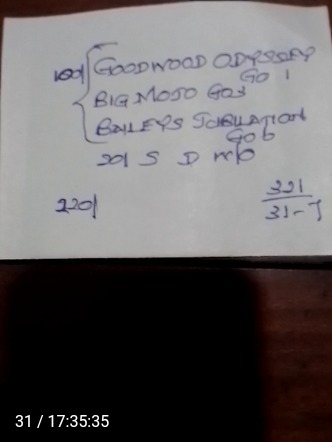 100/ GOODWOOD ODYSSEY
GO 1
BIG MOJO GO3
BAILEYS JUBILATION
GO 6
20/ S D m/o
220/
321
31-7
31 / 17:35:35